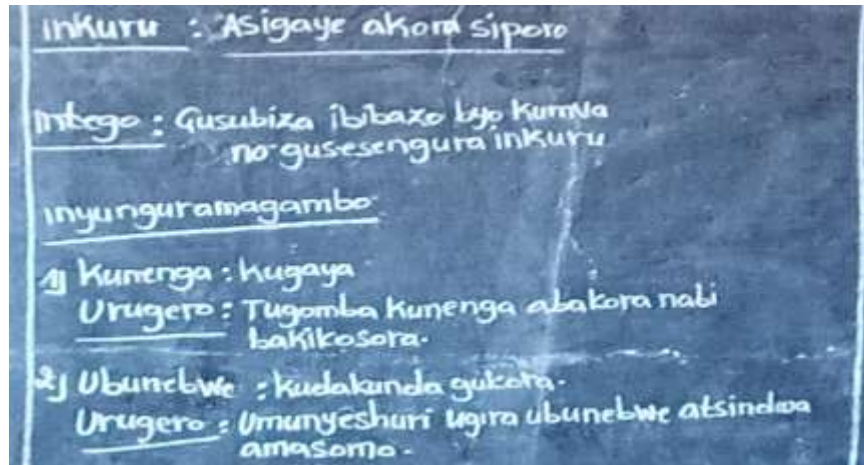 inkuru : Asigaye akora siporo
intego : Gusubiza ibibazo byo kumva
no gusesengura inkuru
inyunguramagambo
1) Kunenga : kugaya
Urugero : Tugomba kunenga abakora nabi
bakikosora.
2) Ubunebwe : kudakunda gukora.
Urugero : Umunyeshuri ugira ubunebwe atsindwa
amasomo.